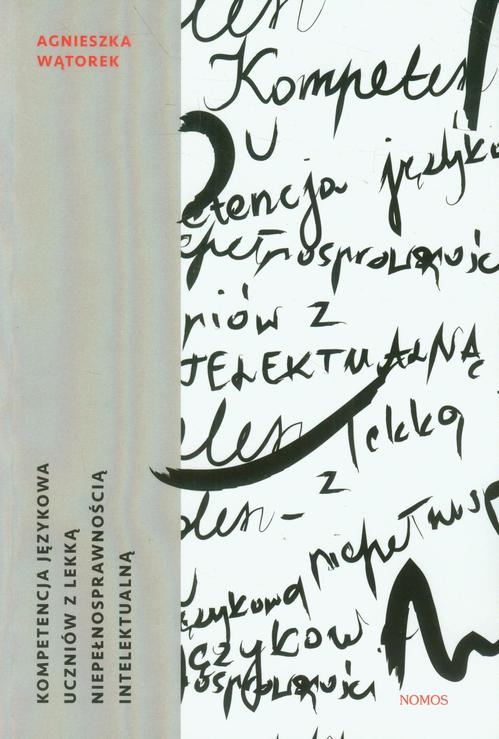 AGNIESZKA
WĄTOREK
KOMPETENCJA JĘZYKOWA
UCZNIÓW Z LEKKĄ
NIEPEŁNOSPRAWNOŚCIĄ
INTELEKTUALNĄ
len
Kompeten
u
etencja języko
epełnosprawnośc
niów z
TELEKTUALNĄ
lekką
z
niepełnos
językową
języków
osprawności
NOMOS